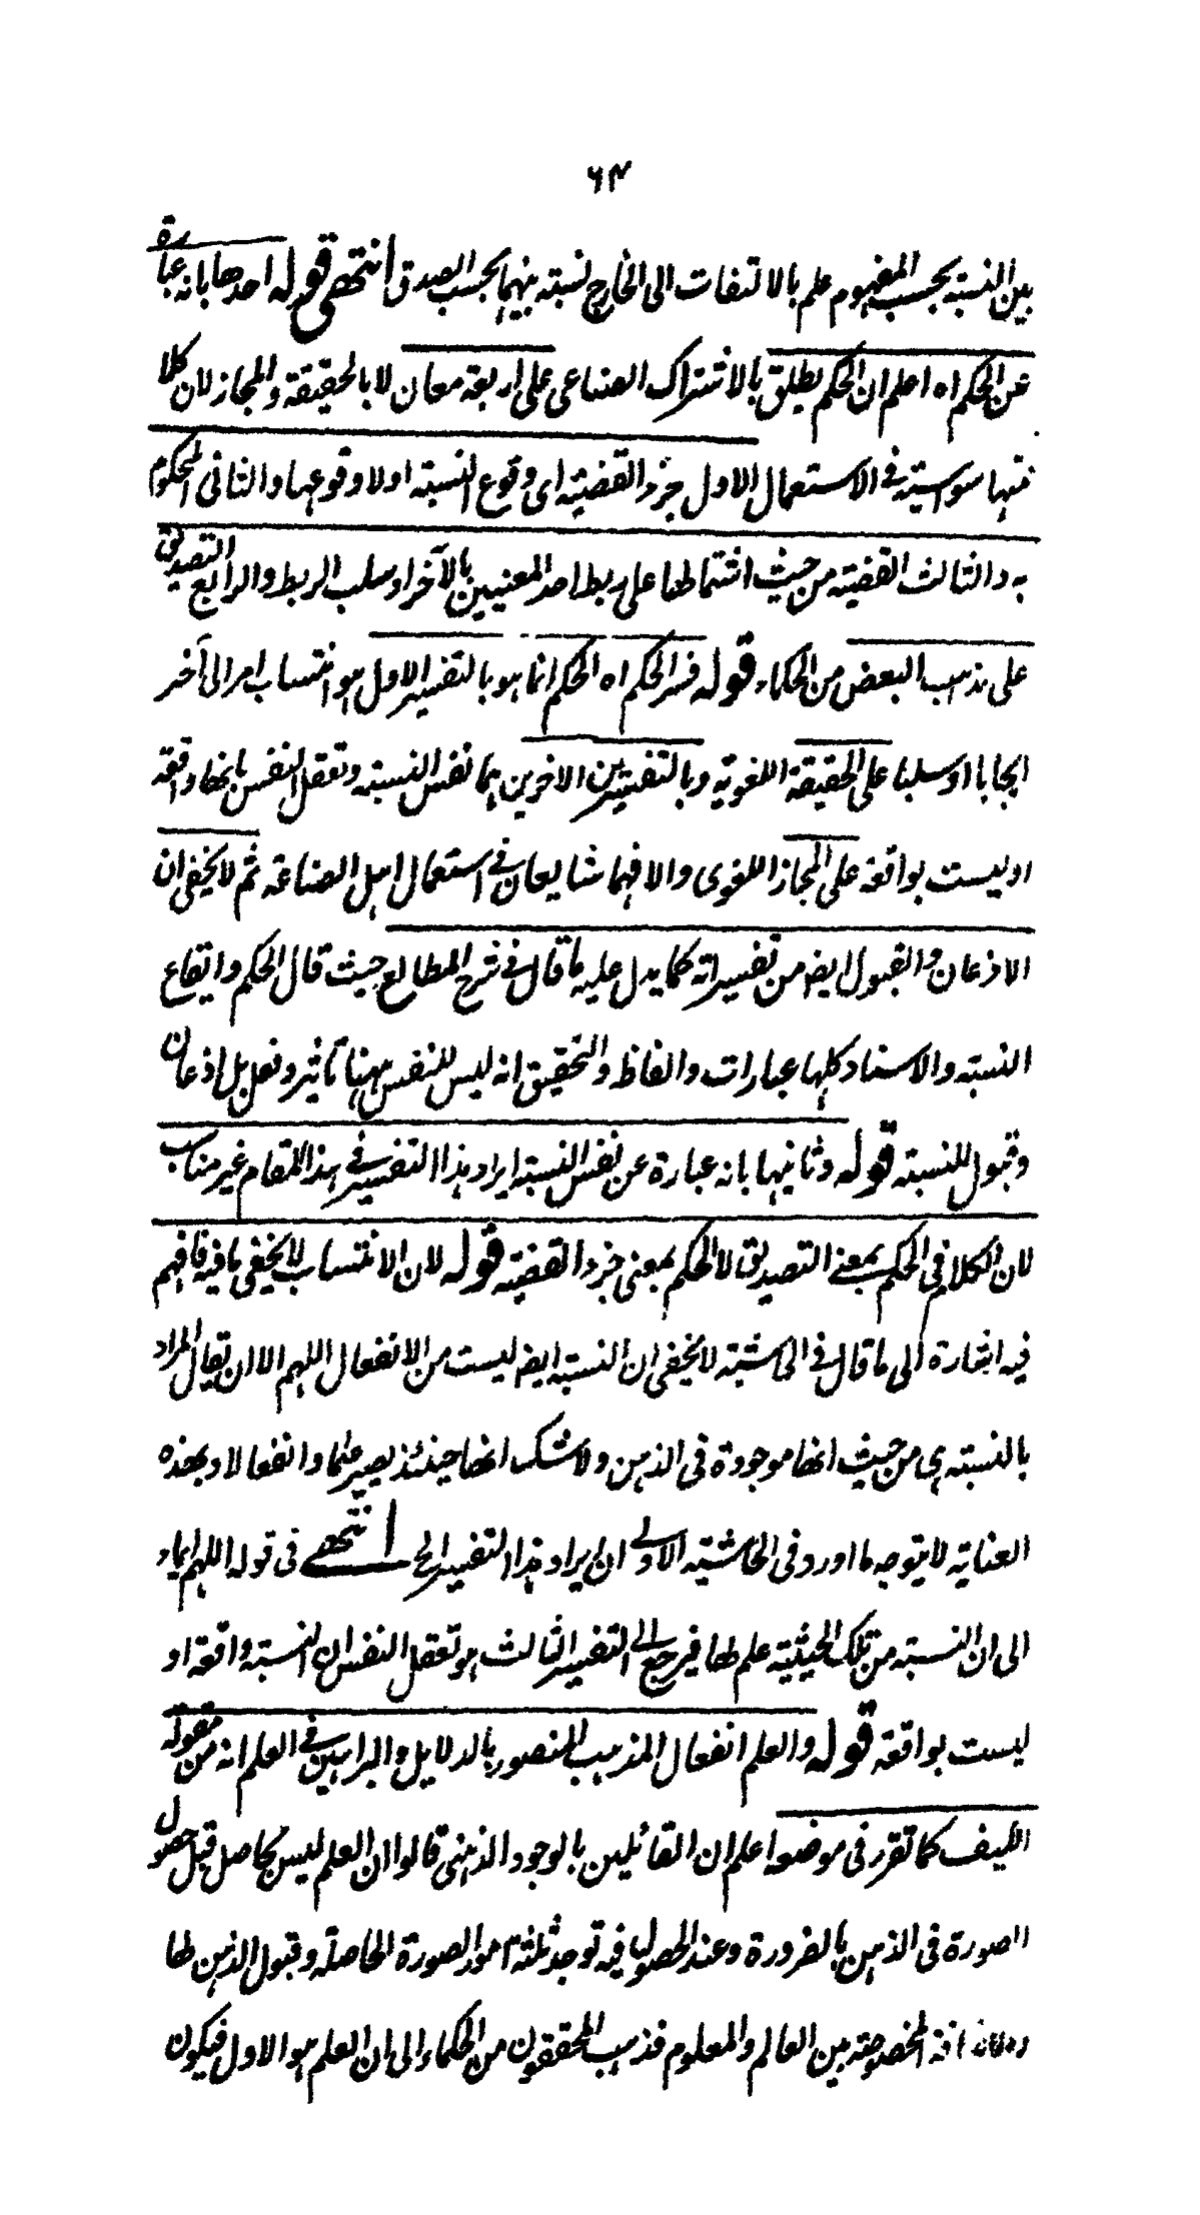 ٦٣
بين النسبة بحسب المفهوم علم بالالتفات الى الخارج لنسبته بينهما بحسب الصدق انتهى قوله احدها بانه عبارة
عن الحكم اه اعلم ان الحكم يطلق بالاشتراك الصناعى على اربعة معان لا بالحقيقة والمجاز لان كلا
منها سواسية فى الاستعمال الاول جزء القضية اى وقوع النسبة او لا وقوعها والثانى المحكوم
به والثالث القضية من حيث اشتمالها على ربط احد المعنيين بالآخر او سلب الربط والرابع التصديق
على مذهب البعض من الحكماء قوله فسر الحكم اه الحكم انما هو بالتفسير الاول هو انتساب امر الى آخر
ايجابا او سلبا على الحقيقة اللغوية وبالتفسيرين الاخرين هما نفس النسبة وتعقل النفس بانها واقعة
او ليست بواقعة على المجاز اللغوى والا فهما شايعان فى استعمال اهل الصناعة ثم لا يخفى ان
الاذعان والقبول ايضا من تفسيراته كما يدل عليه ما قال فى شرح المطالع حيث قال الحكم وايقاع
النسبة والاسناد كلها عبارات والفاظ والتحقيق انه ليس للنفس ههنا تأثير وفعل بل اذعان
وقبول للنسبة قوله وثانيها بانه عبارة عن نفس النسبة ايراد هذا التفسير فى هذا المقام غير مناسب
لان الكلام فى الحكم بمعنى التصديق لا الحكم بمعنى جزء القضية قوله لان الانتساب لا يخفى ما فيه فافهم
فيه اشارة الى ما قال فى الحاشية لا يخفى ان النسبة ايضا ليست من الانفعال اللهم الا ان يقال المراد
بالنسبة هى من حيث انها موجودة فى الذهن ولا شك انها حينئذ يصير علما وانفعالا وبهذه
العناية لا يتوجه ما اورد فى الحاشية الاولى ان ايراد هذا التفسير الخ انتهى فى قوله اللهم ايماء
الى ان النسبة من تلك الحيثية علم لها فيرجع الى التفسير الثالث هو تعقل النفس ان النسبة واقعة او
ليست بواقعة قوله والعلم انفعال المذهب المنصور بالدلايل والبراهين فى العلم انه من مقولة
الكيف كما تقرر فى موضعه اعلم ان القائلين بالوجود الذهنى قالوا ان العلم ليس بحاصل قبل حصول
الصورة فى الذهن بالضرورة وعند الحصول فيه توجد ثلثة امور الصورة الحاصلة وقبول الذهن لها
المخصوصة بين العالم والمعلوم فذهب المحققون من الحكماء الى ان العلم هو الاول فيكون